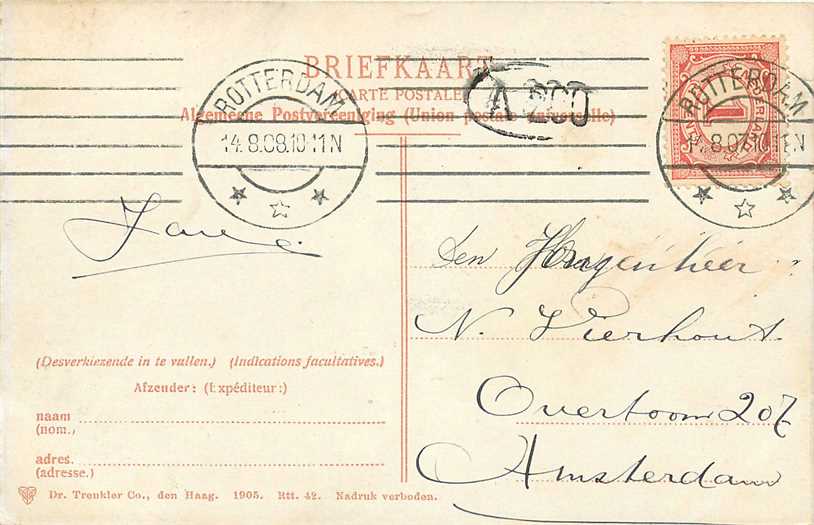 BRIEFKAART
CARTE POSTALE
Algemeene Postvereeniging (Union postale universelle)
ROTTERDAM
14.8.08.10-11N
ROTTERDAM
NEDERLAND
1
N. Vierhout
Overtoom 207
Amsterdam
(Desverkiezende in te vullen.) (Indications facultatives.)
Afzender: (Expéditeur:)
naam
(nom.)
adres.
(adresse.)
Dr. Trenkler Co., den Haag. 1905. Rtt. 42. Nadruk verboden.